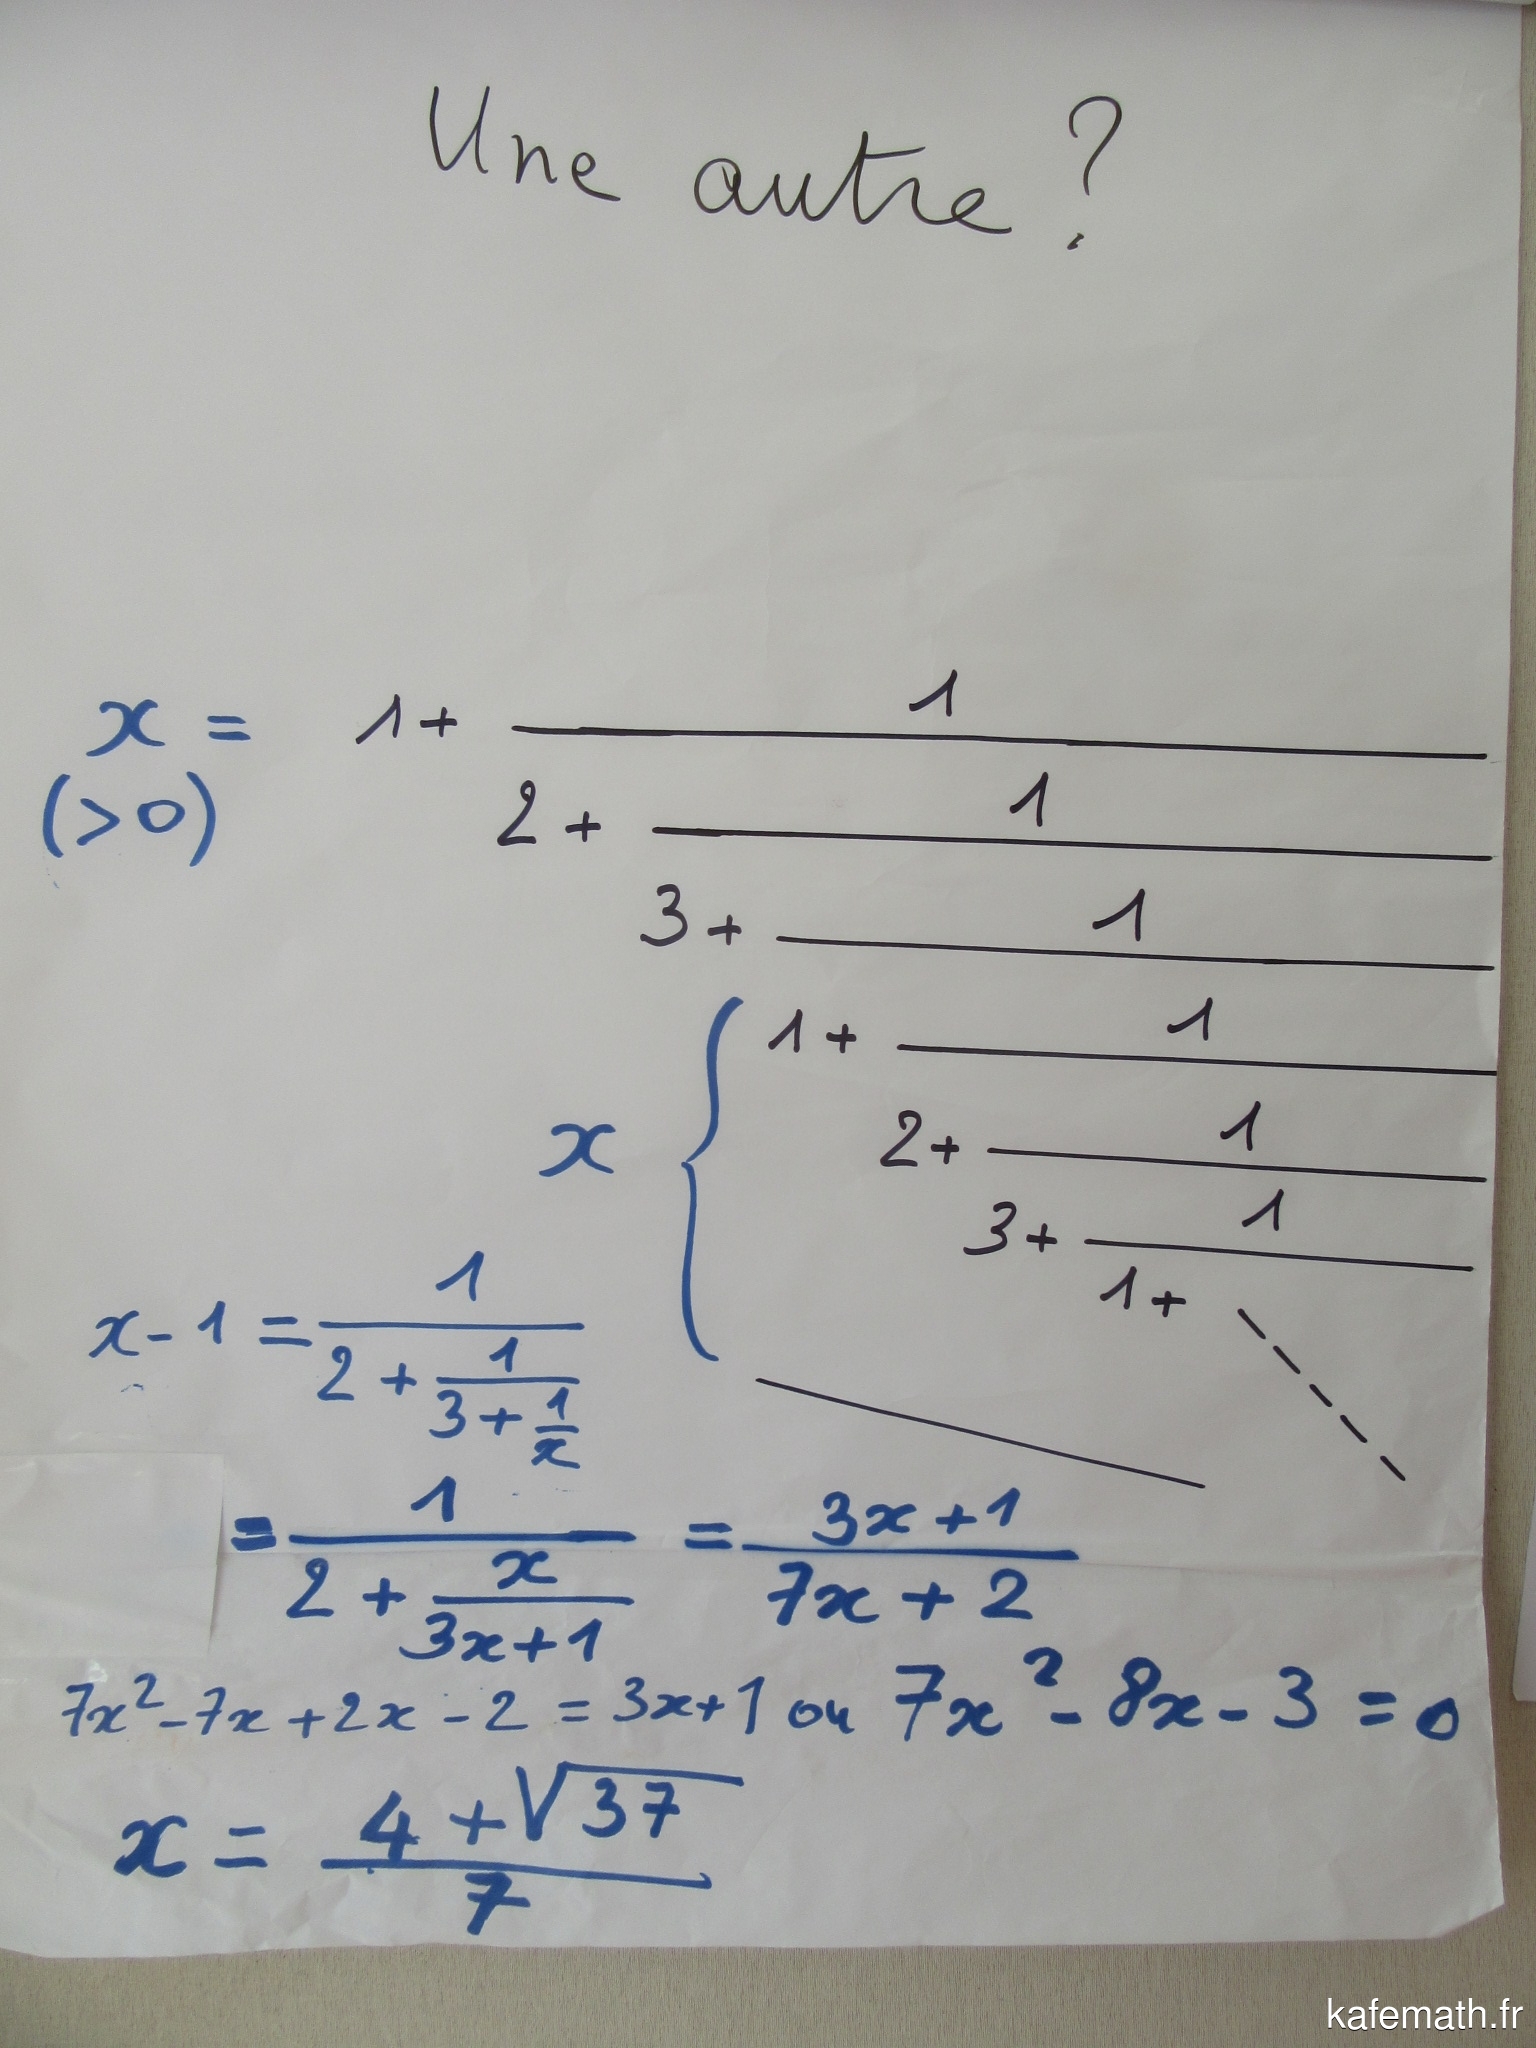 Une autre ?
x = 1 + 1
(>0) 2 + 1
3 + 1
x { 1 + 1
2 + 1
3 + 1
1 +
x - 1 = 1/(2 + 1/(3 + 1/x))
= 1/(2 + x/(3x+1)) = (3x+1)/(7x+2)
7x² - 7x + 2x - 2 = 3x+1 ou 7x² - 8x - 3 = 0
x = (4 + √37)/7
kafemath.fr